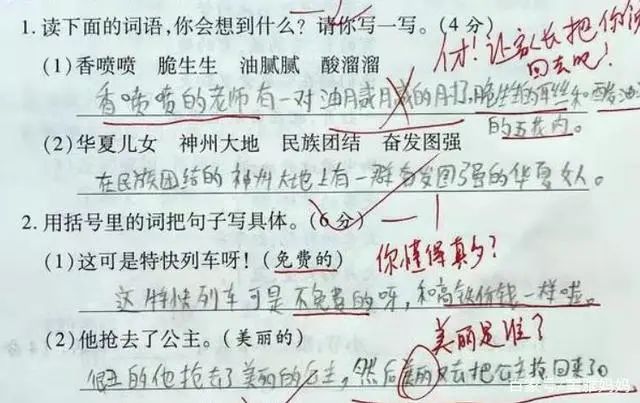 1.读下面的词语,你会想到什么?请你写一写。(4分)
(1)香喷喷 脆生生 油腻腻 酸溜溜
才!让家长把你领
回去吧!
香喷喷的老师有一对油腻腻的肘子,脆生生的耳丝和酸溜溜
的五花肉。
(2)华夏儿女 神州大地 民族团结 奋发图强
在民族团结的神州大地上有一群奋发图强的华夏女人。
2.用括号里的词把句子写具体。(6分) —1
(1)这可是特快列车呀!(免费的) 你懂得真多?
这特快列车可是不免费的呀,和高铁价钱一样啦。
(2)他抢去了公主。(美丽的) 美丽是谁?
的他抢去了美丽的公主,然后美丽又去把公主抢回来了。